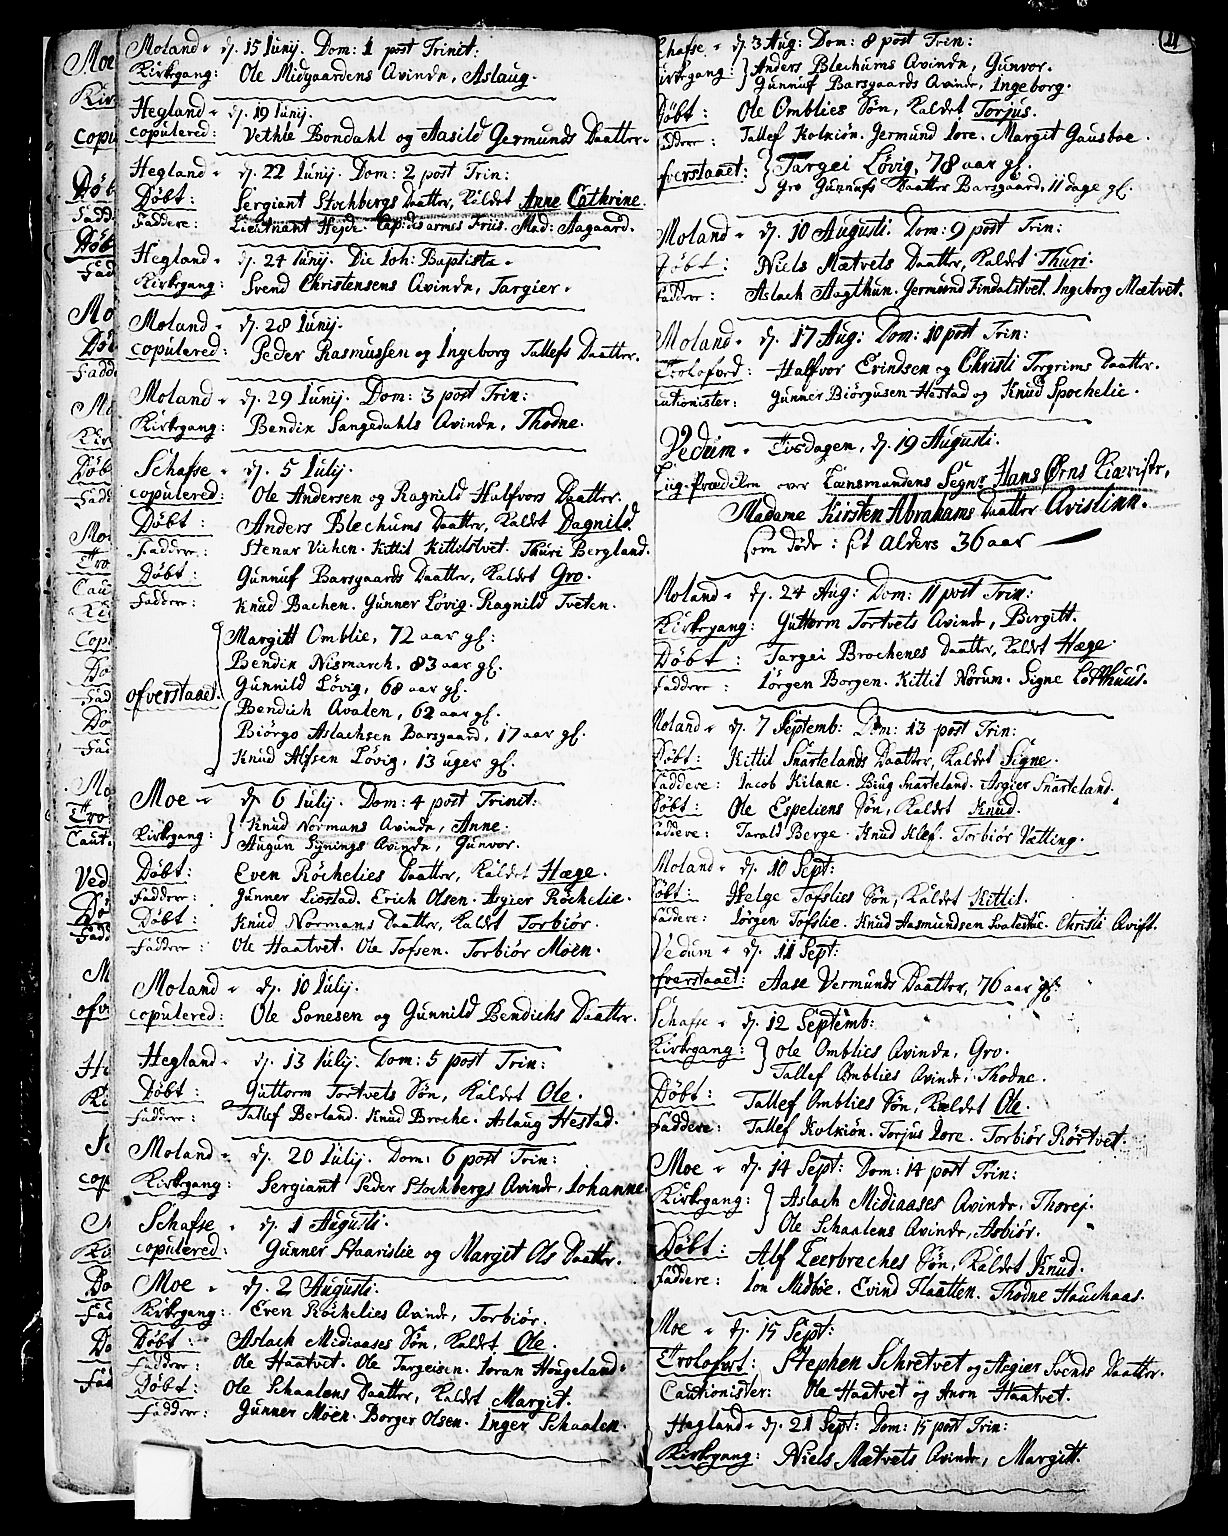 Moland - dj. 15 Iunij. Dom: 1 post Trinit:
Kirkegang: Ole Midgaardens Qvinde, Aslaug.
Hegland - dj. 19 Iunij.
copulered: Vethle Bondahl og Aasild Germunds Daatter.
Hegland - dj. 22 Iunij. Dom: 2 post Trin:
Döbt: Sergiant Stochbergs Daatter, kaldet Anne Cathrine.
Faddere: Lieutnant Hejde. Friis. Mad: Aagaard.
Hegland - dj. 24 Iunij. Die Ioh: Baptistæ.
Kirkegang: Svend Christensens Qvinde, Targier.
Moland - dj. 28 Iunij.
copulered: Peder Rasmussen og Ingeborg Tallefs Daatter.
Moland - dj. 29 Iunij. Dom: 3 post Trin:
Kirkegang: Bendix Langedahls Qvinde, Thodne.
Schafse - dj. 5 Iulij.
copulered: Ole Andersen og Ragnild Halfvors Daatter.
Döbt: Anders Blechums Daatter, kaldet Dagnild.
Faddere: Stenar Vichen. Kittil Kittilstvet. Thuri Bergland.
Döbt: Gunnuf Barsgaards Daatter, kaldet Gro.
Faddere: Knud Bachen. Gunner Lövig. Ragnild Tveten.
Margitt Omblie, 72 aar gl:
Bendix Nismarch, 83 aar gl.
Gunnild Lövig, 68 aar gl.
ofverstaaet: Bendich Qvalen, 62 aar gl.
Biörgo Aslachsen Barsgaard, 17 aar gl.
Knud Alfsen Lövig, 13 uger gl.
Moe - dj. 6 Iulij. Dom: 4 post Trinit:
Kirkegang: Knud Normans Qvinde, Anne.
Augun Synings Qvinde, Gunvor.
Döbt: Even Röchelies Daatter, kaldet Hæge.
Faddere: Gunner Liostad. Erich Olsen. Asgier Röchelie.
Döbt: Knud Normans Daatter, kaldet Torbiör.
Faddere: Ole Haatvet. Ole Tofsen. Torbiör Moen.
Moland - dj. 10 Iulij.
copulered: Ole Sonesen og Gunnild Bendichs Daatter.
Hegland - dj. 13 Iulij. Dom: 5 post Trin:
Döbt: Guttorm Tortvets Sön, kaldet Ole.
Faddere: Tallef Berland. Knud Broche. Aslaug Hestad.
Moland - dj. 20 Iulij. Dom: 6 post Trin:
Kirkegang: Sergiant Peder Stochbergs Qvinde, Iohanne.
Schafse - dj. 1 Augusti.
copulered: Gunner Staarislie og Margit Ols Daatter.
Moe - dj. 2 Augusti.
Kirkegang: Even Röchelies Qvinde, Torbiör.
Döbt: Aslach Midiaases Sön, kaldet Ole.
Faddere: Ole Haatvet. Ole Targeisen. Ioran Hougeland.
Döbt: Ole Schaalens Daatter, kaldet Margit.
Faddere: Gunner Moen. Borger Olsen. Inger Schaalen.
11
Schafse - dj. 3 Aug: Dom: 8 post Trin:
Kirkegang: Anders Blechums Qvinde, Gunvor.
Gunnuf Barsgaards Qvinde, Ingeborg.
Döbt: Ole Omblies Sön, kaldet Torjus.
Faddere: Tallef Kolkiön. Germund Lore. Margit Gausboe.
ofverstaaet: Targei Lövig, 78 aar gl.
Gro Gunnufs Daatter Barsgaard, 11 dage gl.
Moland - dj. 10 Augusti. Dom: 9 post Trin:
Döbt: Niels Mætvets Daatter, kaldet Thuri.
Faddere: Aslach Aagthun. Germund Findalstvet. Ingeborg Mætvet.
Moland - dj. 17 Aug: Dom: 10 post Trin:
Troloford: Halfvor Evindsen og Christi Torgrims Daatter.
Cautionister: Gunner Biörgusen Hestad og Knud Spochelie.
Vedum - Tisdagen, dj. 19 Augusti.
Liig-Prædiken over Lænsmandens Segnr Hans Örns Kiæriste,
Madame Kirsten Abrahams Daatter Qvislinn.
som döde i sit Alders 36 aar
Moland - dj. 24 Aug: Dom: 11 post Trin:
Kirkegang: Guttorm Tortvets Qvinde, Birgitt.
Döbt: Targai Brochenes Daatter, kaldet Hæge
Faddere: Iörgen Borgen. Kittil Norum. Signe Lofthuus.
Moland - dj. 7 Septemb: Dom: 13 post Trin:
Döbt: Kittil Snartelands Daatter, kaldet Signe.
Faddere: Iacob Kilane. Biug Snarteland. Asgier Snarteland.
Döbt: Ole Espeliens Sön, kaldet Knud.
Faddere: Tarald Berge. Knud Klef. Torbiör Vætting.
Moland - dj. 10 Sept:
Döbt: Helge Tofslies Sön, kaldet Kittil.
Faddere: Iörgen Tofslie. Knud Aasmundsen Christi Qvift.
Vedum - dj. 11 Sept:
ofverstaaet: Aase Vermunds Daatter, 76 aar gl.
Schafse - dj. 12 Septemb:
Kirkegang: Ole Omblies Qvinde, Gro.
Tallef Omblies Qvinde, Thodne.
Döbt: Tallef Omblies Sön, kaldet Ole.
Faddere: Tallef Kolkiön. Torjus Lore. Torbiör Rörtvet.
Moe - dj. 14 Sept: Dom: 14 post Trin:
Kirkegang: Aslach Midiaases Qvinde, Thorej.
Ole Schaalens Qvinde, Asbiör.
Döbt: Alf Leerbreches Sön, kaldet Knud.
Faddere: Ion Midböe. Evind Flaatten. Thodne Hauchaas.
Moe - dj. 15 Sept:
Trolofvet: Stephen Schretvet og Asgier Svends Daatter.
Cautionister: Ole Haatvet og Anon Haatvet.
Hægland - dj. 21 Sept: Dom: 15 post Trin:
Kirkegang: Niels Mætvets Qvinde, Margitt.